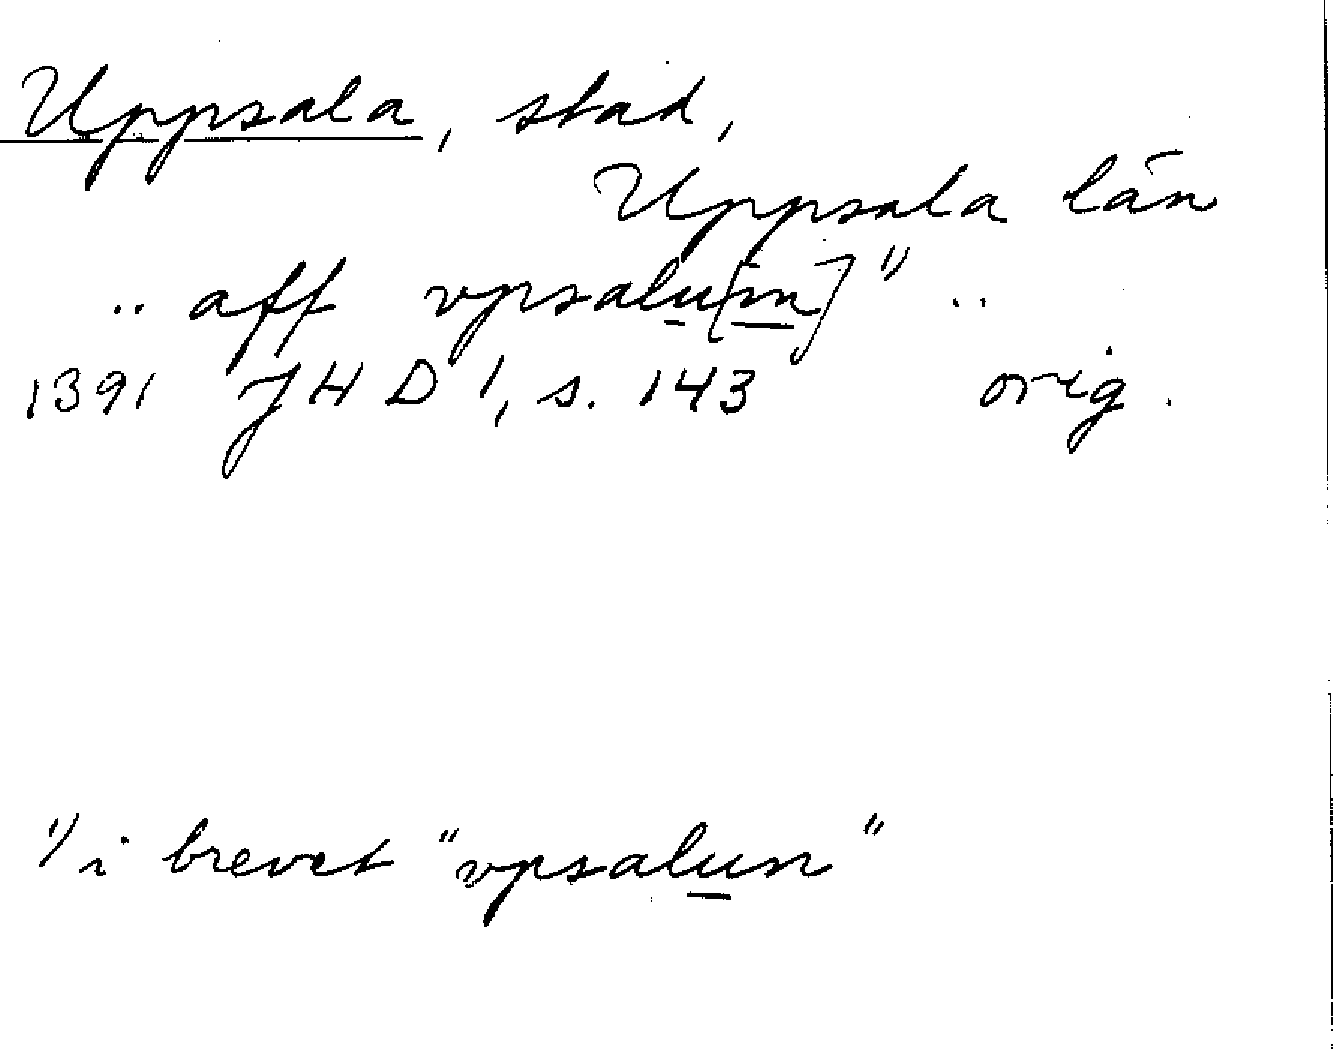 Uppsala, stad,
Uppsala län
.. aff vpsalu[m] 1) ..
1391 JHD 1, s. 143 orig.
1) i brevet "vpsalun"